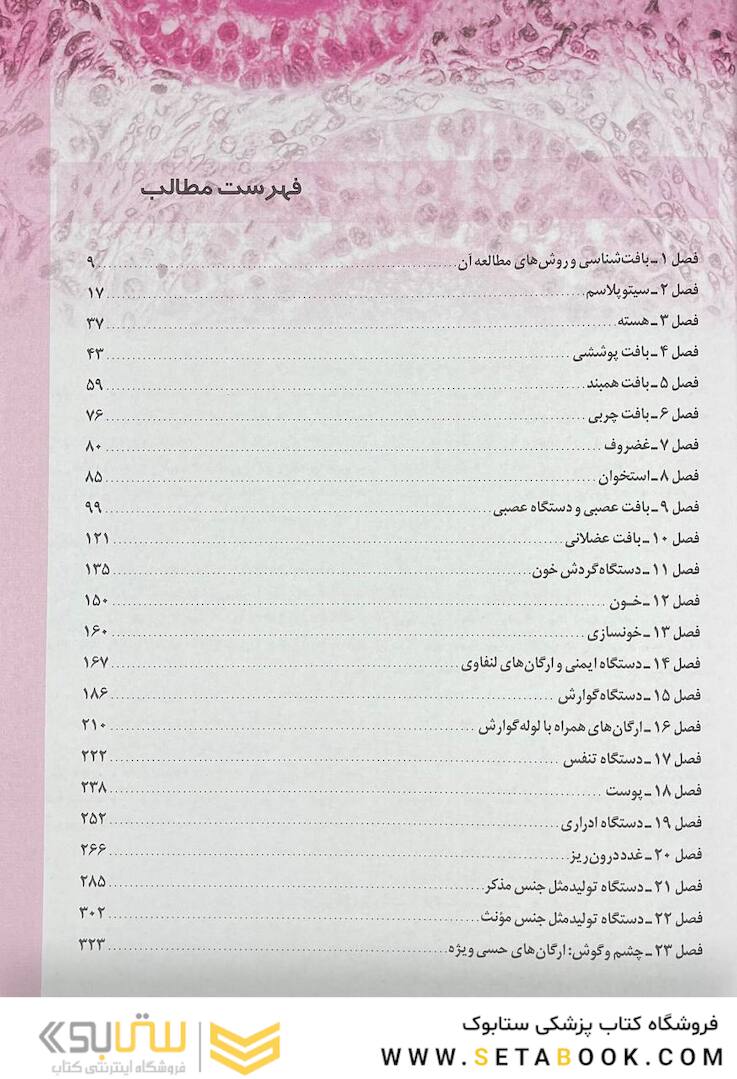 فهرست مطالب
فصل ۱ ـ بافت‌شناسی و روش‌های مطالعه آن ........ ۹
فصل ۲ ـ سیتوپلاسم ........ ۱۷
فصل ۳ ـ هسته ........ ۳۷
فصل ۴ ـ بافت پوششی ........ ۴۳
فصل ۵ ـ بافت همبند ........ ۵۹
فصل ۶ ـ بافت چربی ........ ۷۶
فصل ۷ ـ غضروف ........ ۸۰
فصل ۸ ـ استخوان ........ ۸۵
فصل ۹ ـ بافت عصبی و دستگاه عصبی ........ ۹۹
فصل ۱۰ ـ بافت عضلانی ........ ۱۲۱
فصل ۱۱ ـ دستگاه گردش خون ........ ۱۳۵
فصل ۱۲ ـ خـون ........ ۱۵۰
فصل ۱۳ ـ خونسازی ........ ۱۶۰
فصل ۱۴ ـ دستگاه ایمنی و ارگان‌های لنفاوی ........ ۱۶۷
فصل ۱۵ ـ دستگاه گوارش ........ ۱۸۶
فصل ۱۶ ـ ارگان‌های همراه با لوله گوارش ........ ۲۱۰
فصل ۱۷ ـ دستگاه تنفس ........ ۲۲۲
فصل ۱۸ ـ پوست ........ ۲۳۸
فصل ۱۹ ـ دستگاه ادراری ........ ۲۵۲
فصل ۲۰ ـ غدد درون‌ریز ........ ۲۶۶
فصل ۲۱ ـ دستگاه تولیدمثل جنس مذکر ........ ۲۸۵
فصل ۲۲ ـ دستگاه تولیدمثل جنس مؤنث ........ ۳۰۲
فصل ۲۳ ـ چشم و گوش: ارگان‌های حسی ویژه ........ ۳۲۳
فروشگاه کتاب پزشکی ستابوک
WWW.SETABOOK.COM
ستابوک
فروشگاه اینترنتی کتاب